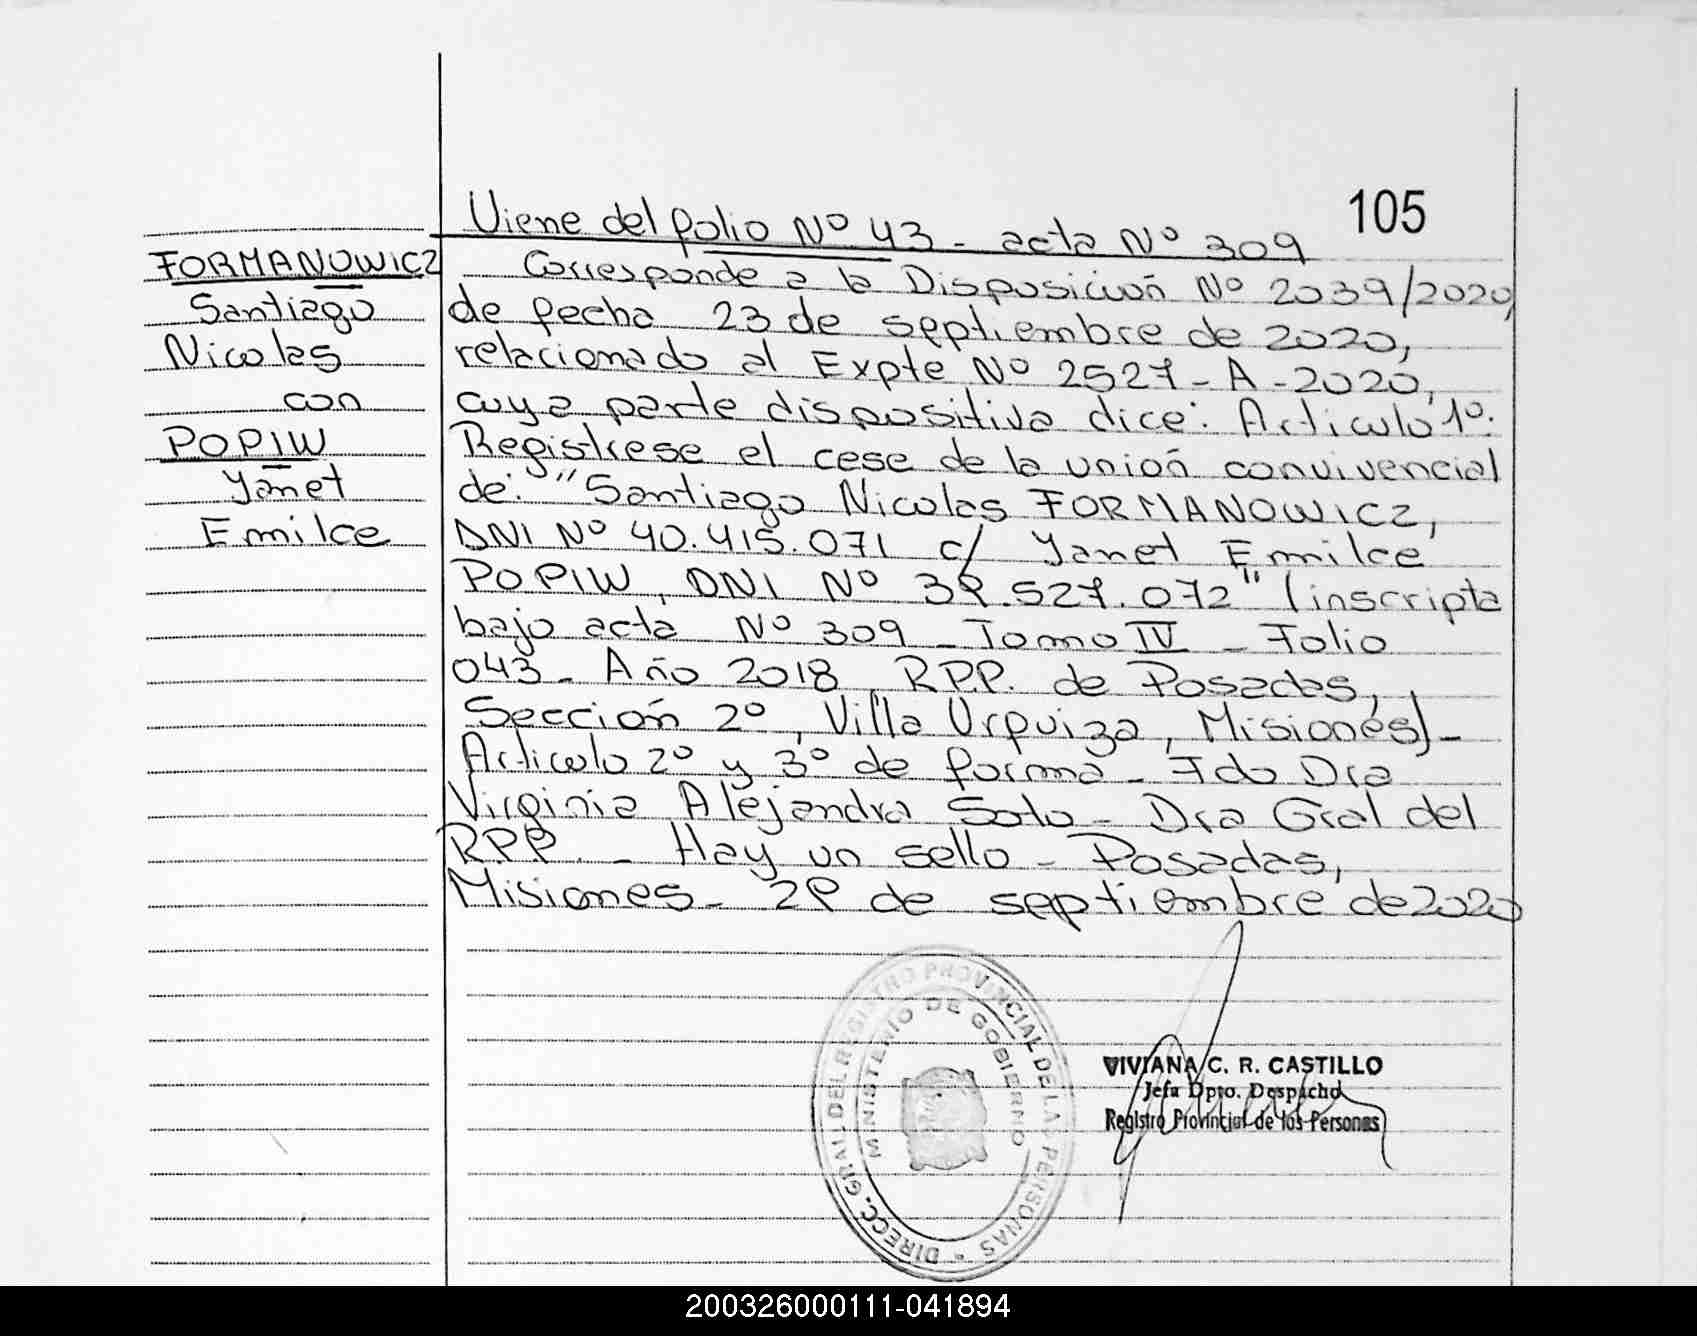 105
Viene del folio Nº 43 - acta Nº 309
FORMANOWICZ
Santiago
Nicolas
con
POPIW
Yanet
Emilce
Corresponde a la Disposición Nº 2039/2020,
de fecha 23 de septiembre de 2020,
relacionado al Expte Nº 2527-A-2020,
cuya parte dispositiva dice: Articulo 1º:
Registrese el cese de la unión convivencial
de: "Santiago Nicolas FORMANOWICZ,
DNI Nº 40.415.071 c/ Yanet Emilce
POPIW, DNI Nº .527.072" (inscripta
bajo acta Nº 309 - Tomo IV - Folio
043 - Año 2018 R.P.P. de Posadas,
Sección 2º, Villa Urquiza, Misiones) -
Articulo 2º y 3º de forma - Fdo Dra
Virginia Alejandra Soto - Dra Gral del
R.P.P. - Hay un sello - Posadas,
Misiones - de septiembre de 2020
DIRECC. GRAL DEL REGISTRO PROVINCIAL DE LAS PERSONAS
MINISTERIO DE GOBIERNO
VIVIANA C. R. CASTILLO
Jefa Dpto. Despacho
Registro Provincial de las Personas
200326000111-041894